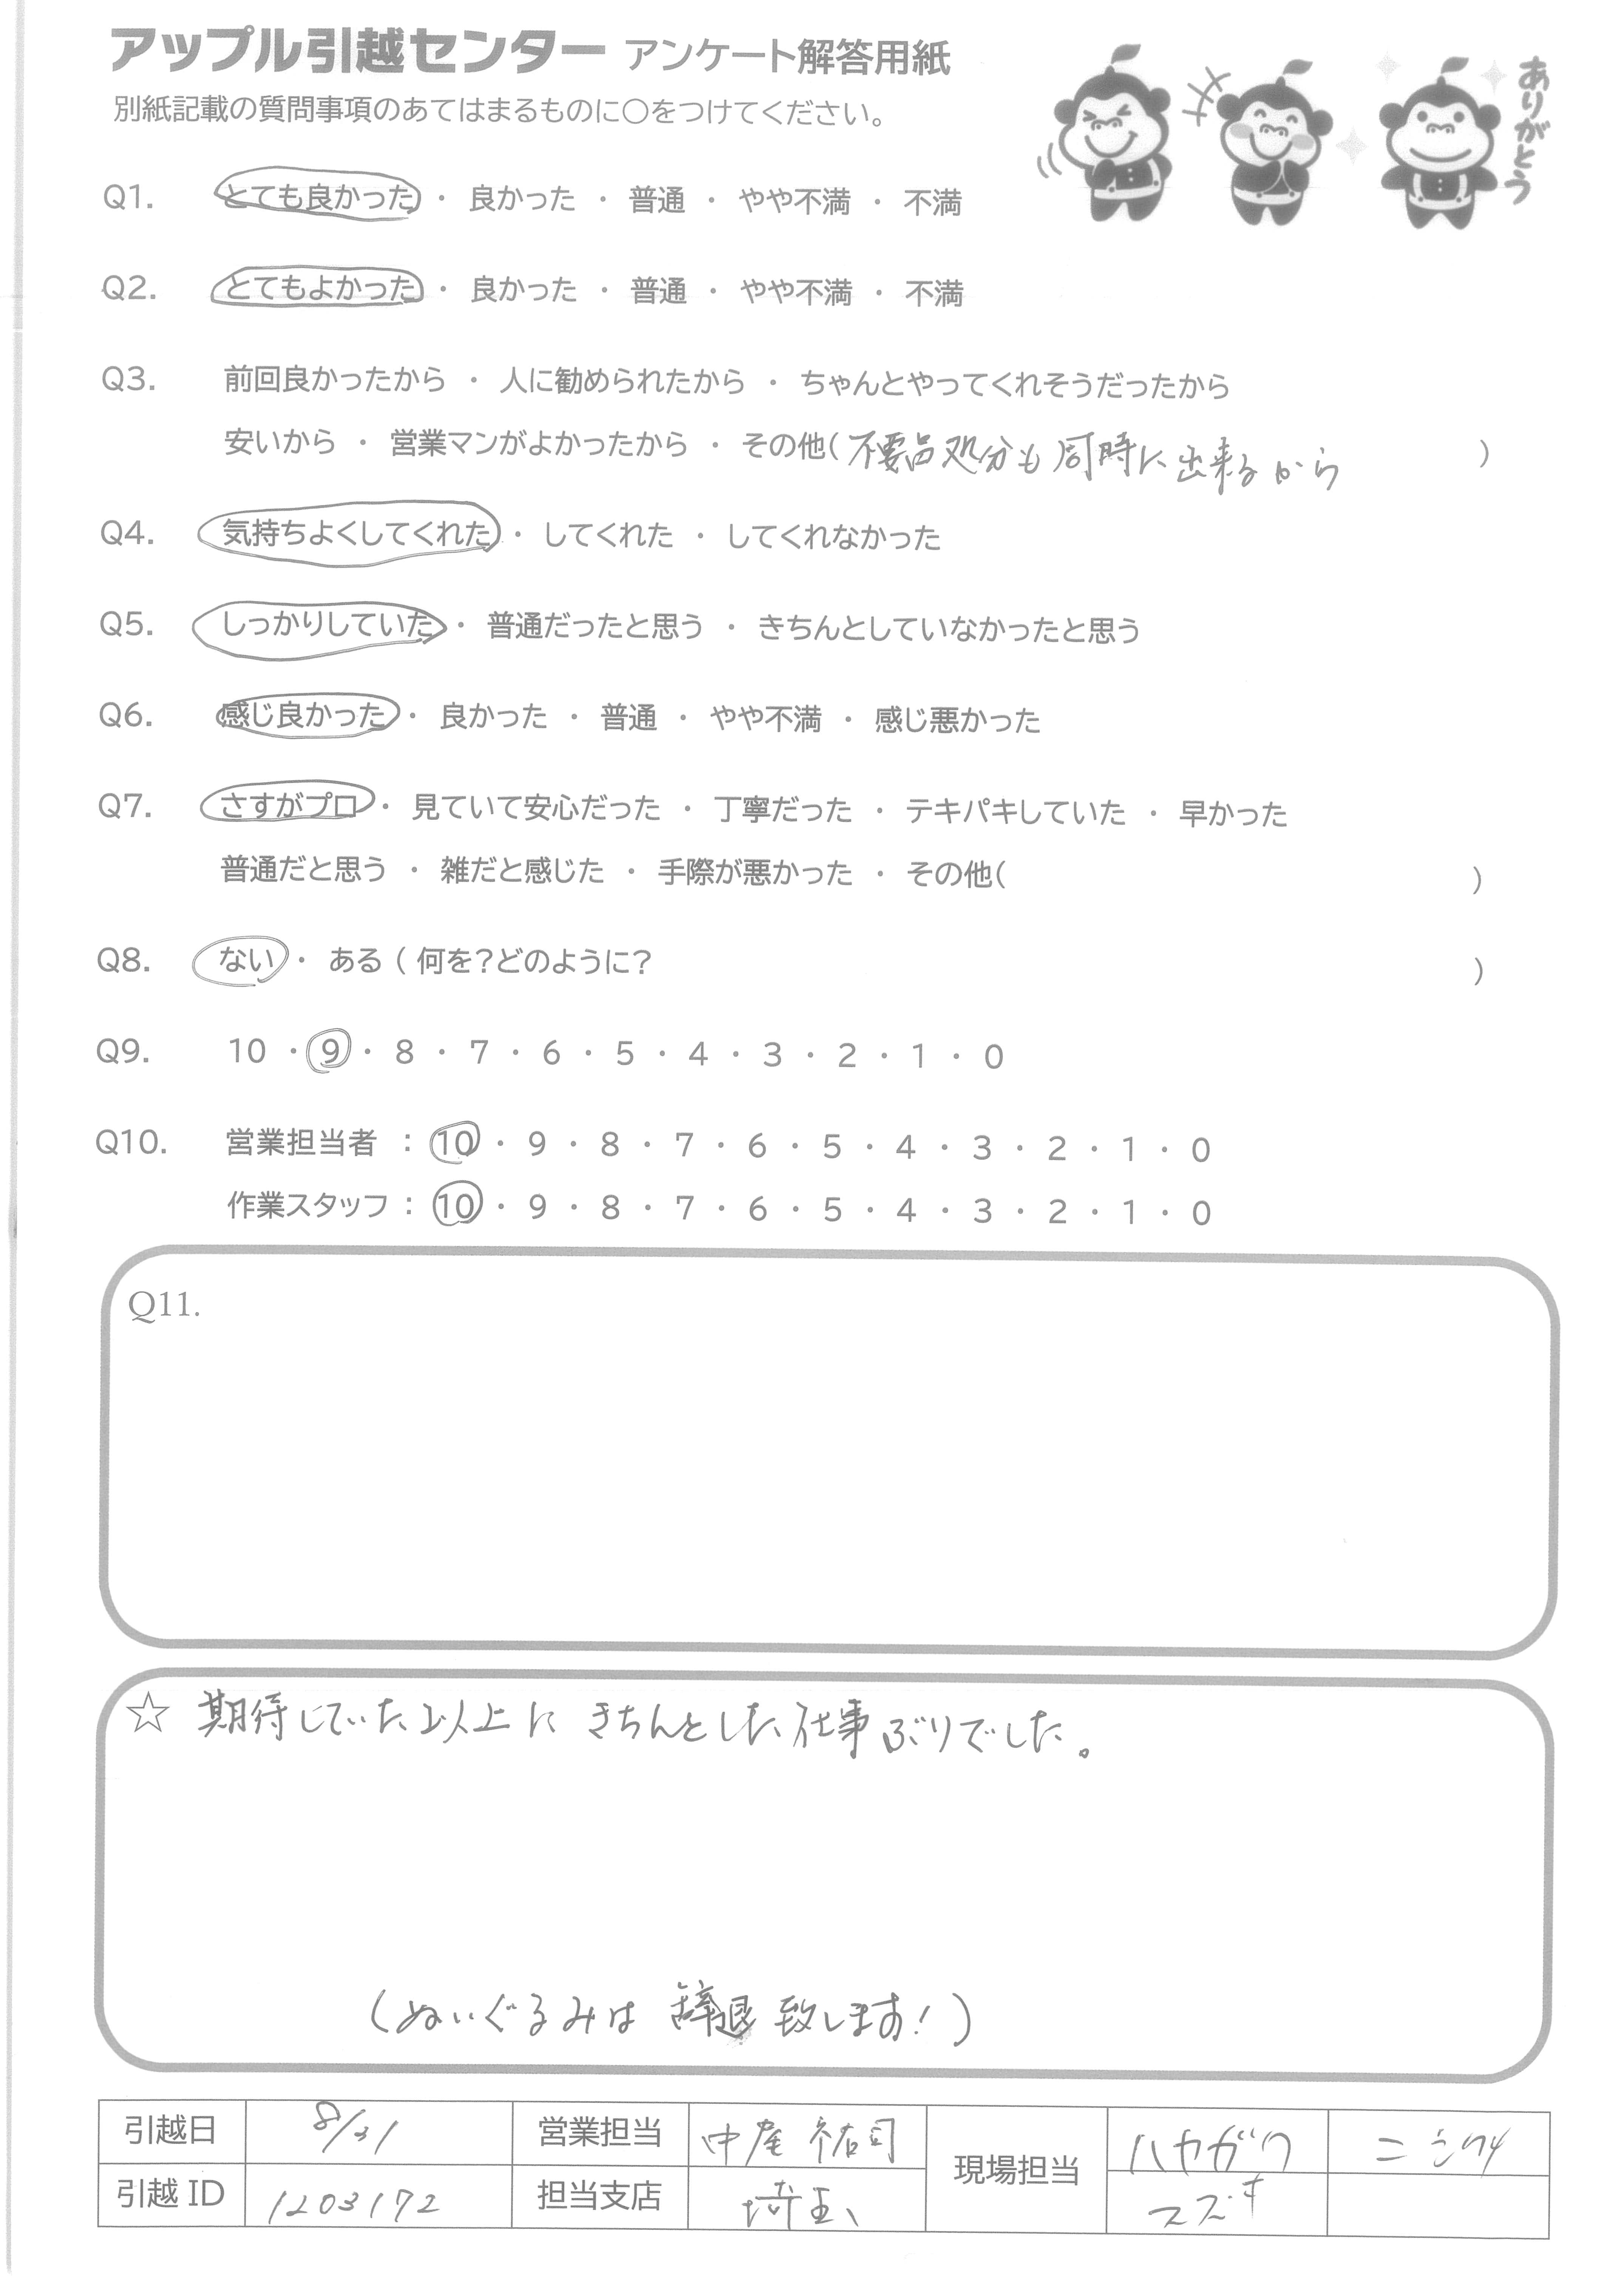 アップル引越センター アンケート解答用紙
別紙記載の質問事項のあてはまるものに○をつけてください。
ありがとう
Q1. とても良かった ・ 良かった ・ 普通 ・ やや不満 ・ 不満
Q2. とてもよかった ・ 良かった ・ 普通 ・ やや不満 ・ 不満
Q3. 前回良かったから ・ 人に勧められたから ・ ちゃんとやってくれそうだったから
安いから ・ 営業マンがよかったから ・ その他(不要品処分も同時に出来るから )
Q4. 気持ちよくしてくれた ・ してくれた ・ してくれなかった
Q5. しっかりしていた ・ 普通だったと思う ・ きちんとしていなかったと思う
Q6. 感じ良かった ・ 良かった ・ 普通 ・ やや不満 ・ 感じ悪かった
Q7. さすがプロ ・ 見ていて安心だった ・ 丁寧だった ・ テキパキしていた ・ 早かった
普通だと思う ・ 雑だと感じた ・ 手際が悪かった ・ その他( )
Q8. ない ・ ある ( 何を?どのように? )
Q9. 10 ・ 9 ・ 8 ・ 7 ・ 6 ・ 5 ・ 4 ・ 3 ・ 2 ・ 1 ・ 0
Q10. 営業担当者 : 10 ・ 9 ・ 8 ・ 7 ・ 6 ・ 5 ・ 4 ・ 3 ・ 2 ・ 1 ・ 0
作業スタッフ : 10 ・ 9 ・ 8 ・ 7 ・ 6 ・ 5 ・ 4 ・ 3 ・ 2 ・ 1 ・ 0
Q11.
☆ 期待していた以上に きちんとした仕事ぶりでした。
(ぬいぐるみは 辞退致します!)
引越日 8/31 営業担当 祐司 現場担当 ハヤガワ
引越 ID 1203172 担当支店 埼玉 スズキ